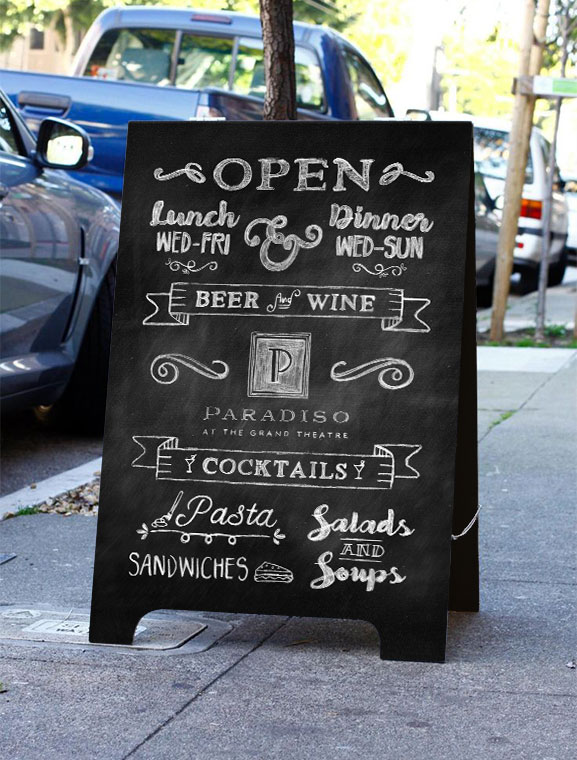 OPEN
Lunch & Dinner
WED-FRI WED-SUN
BEER and WINE
P
PARADISO
AT THE GRAND THEATRE
COCKTAILS
Pasta
SANDWICHES
Salads
AND
Soups